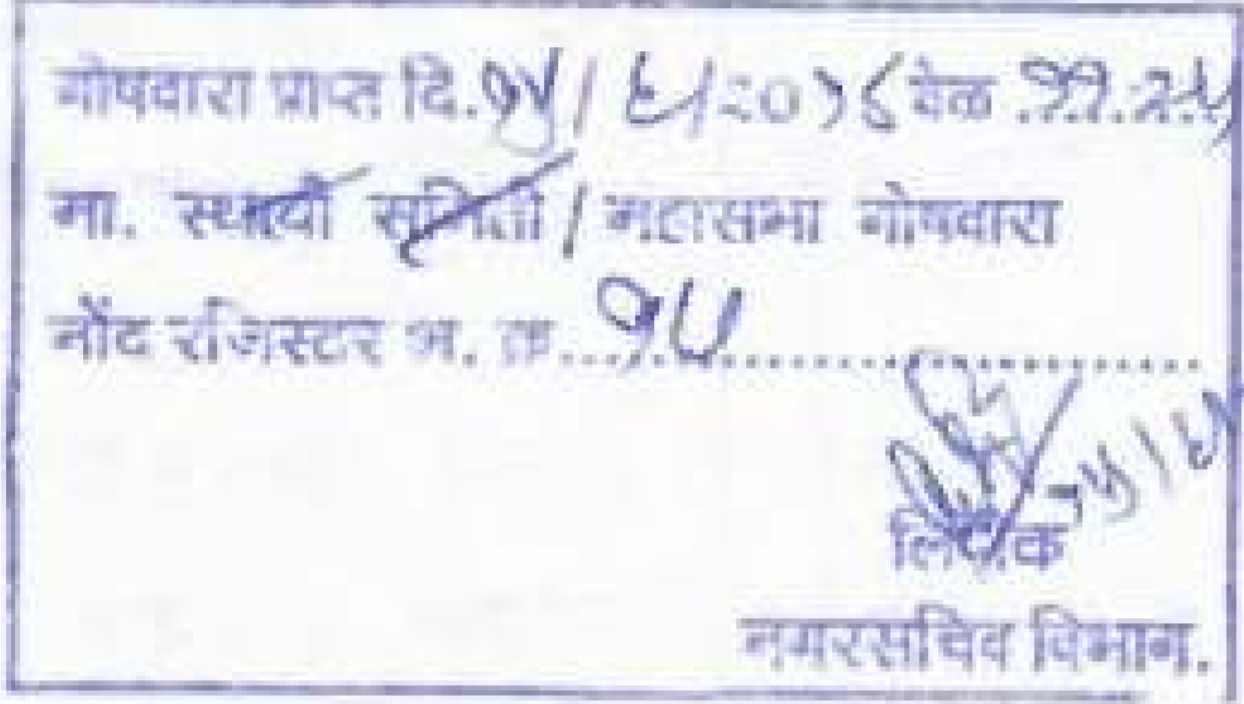 गोषवारा प्राप्त दि. १५/६/२०१८ वेळ ११.२५
मा. स्थायी समिती / महासभा गोषवारा
नोंद रजिस्टर अ. क्र. १५
१५/६
लिपीक
नगरसचिव विभाग.